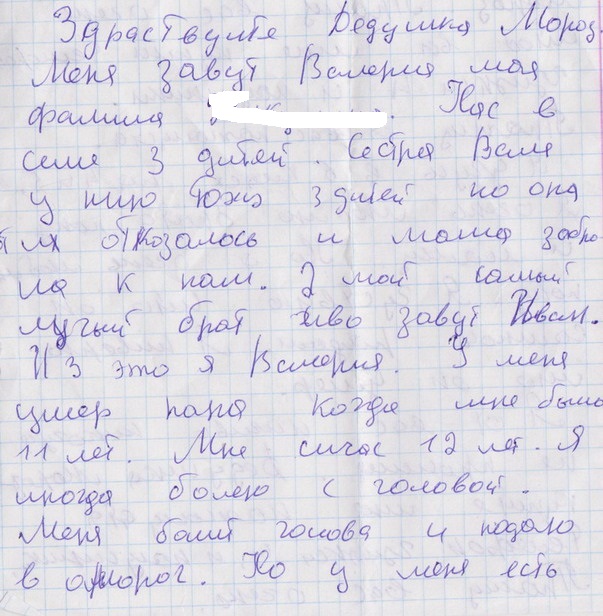 Здраствуйте Дедушка Мороз.
Меня завут Валерия моя
фамилия. Нас в
семе 3 дитей. Сестра Валя
у нию тожэ 3 дитей но она
от их отказалось и мама забра
ла к нам. 2 мой самый
лучый брат иво завут Иван.
И 3 это я Валерия. У меня
умер папа когда мне было
11 лет. Мне сичас 12 лет. Я
иногда болею с головой.
Меня болит голова и подаю
в оморог. Но у меня есть